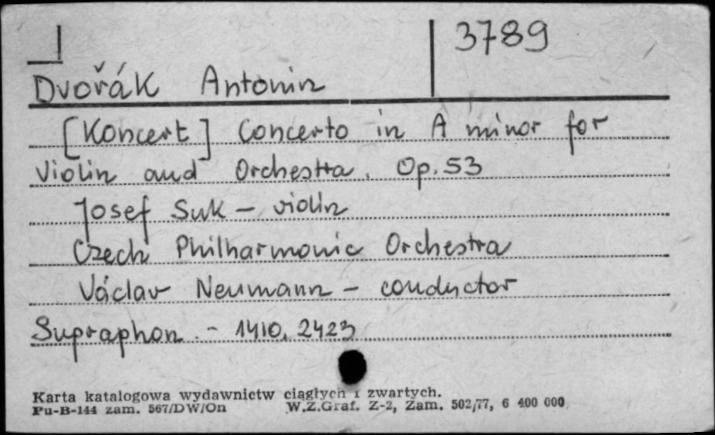 3789
Dvořák Antonin
[Koncert] Concerto in A minor for
Violin and Orchestra. Op. 53
Josef Suk – violin
Czech Philharmonic Orchestra
Václav Neumann – conductor
Supraphon. – 1410, 2423
Karta katalogowa wydawnictw ciągłych i zwartych.
Pu-B-144 zam. 567/DW/On W.Z.Graf. Z-2, Zam. 502/77, 6 400 000